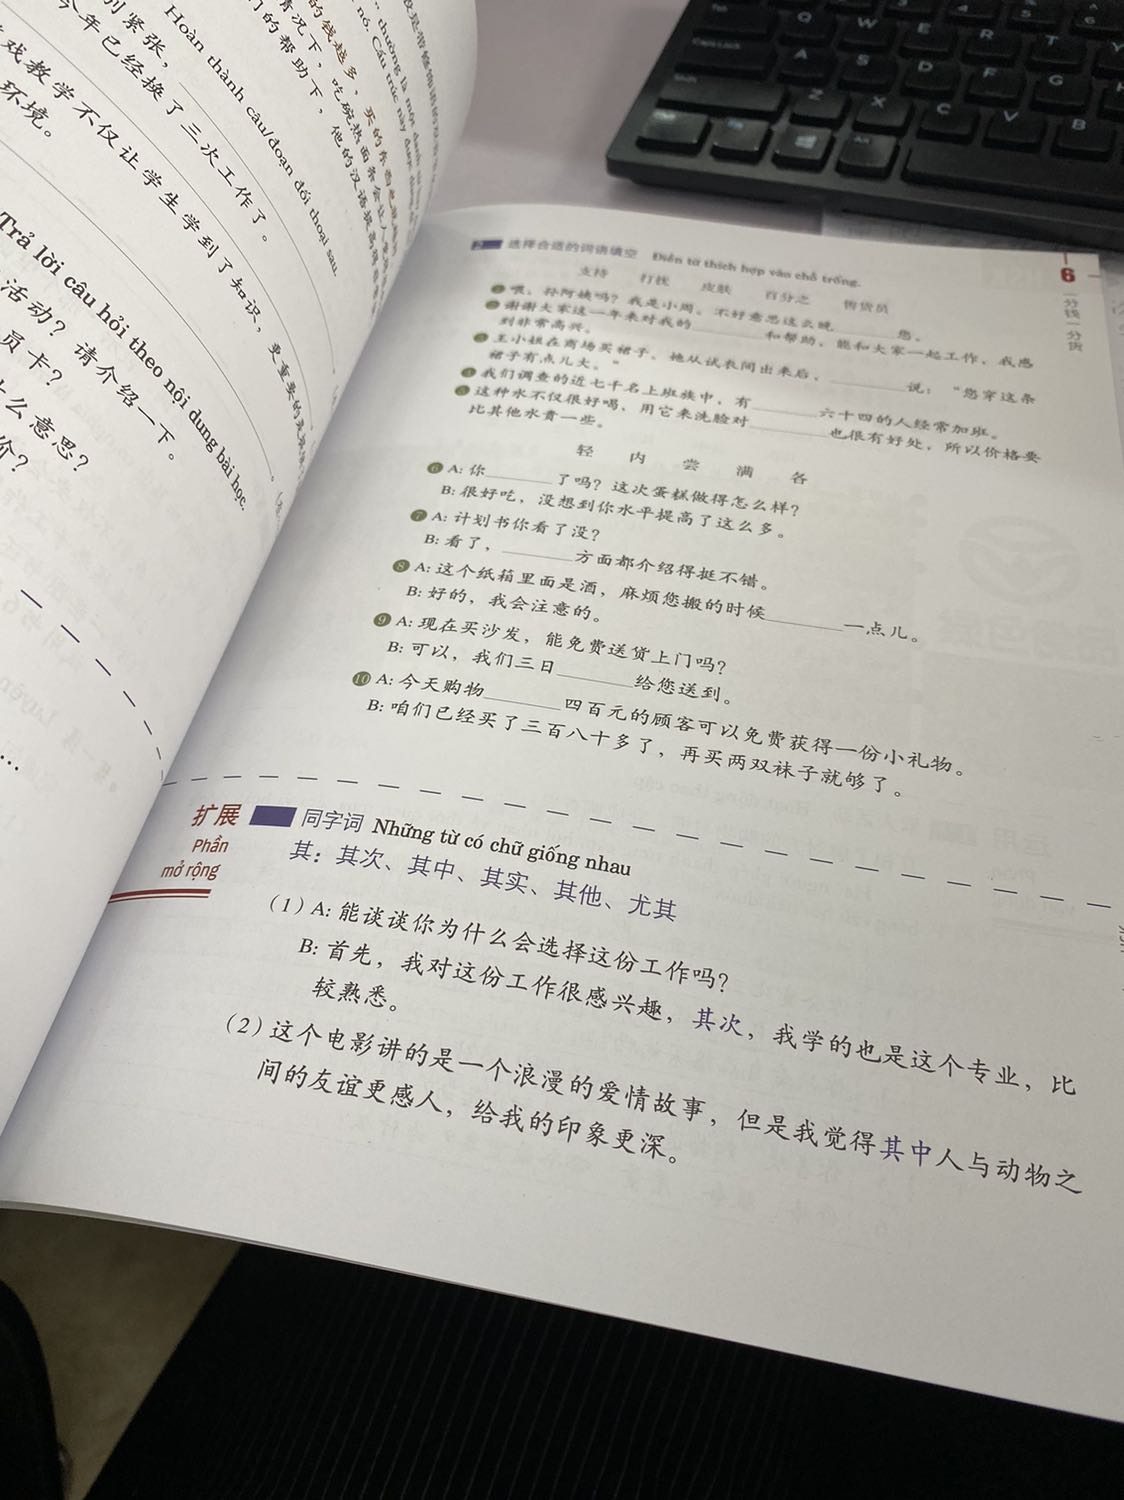 的钱越多，买的东西也
情况下，吃碗热面条会让人
们的帮助下，他的汉语提高
Hoàn thành câu/đoạn đối thoại sau.
别紧张，
今年已经换了三次工作了。
戏教学不仅让学生学到了知识，更重要的
环境。
Trả lời câu hỏi theo nội dung bài học.
活动？请介绍一下。
员卡？
什么意思？
价？
2 选择合适的词语填空 Điền từ thích hợp vào chỗ trống.
支持 打扰 皮肤 百分之 售货员
1 喂，孙阿姨吗？我是小周。不好意思这么晚______您。
2 谢谢大家这一年来对我的______和帮助，能和大家一起工作，我感
到非常高兴。
3 王小姐在商场买裙子。她从试衣间出来后，______说：“您穿这条
裙子有点儿大。”
4 我们调查的近七千名上班族中，有______六十四的人经常加班。
5 这种水不仅很好喝，用它来洗脸对______也很有好处，所以价格要
比其他水贵一些。
轻 内 尝 满 各
6 A: 你______了吗？这次蛋糕做得怎么样？
B: 很好吃，没想到你水平提高了这么多。
7 A: 计划书你看了没？
B: 看了，______方面都介绍得挺不错。
8 A: 这个纸箱里面是酒，麻烦您搬的时候______一点儿。
B: 好的，我会注意的。
9 A: 现在买沙发，能免费送货上门吗？
B: 可以，我们三日______给您送到。
10 A: 今天购物______四百元的顾客可以免费获得一份小礼物。
B: 咱们已经买了三百八十多了，再买两双袜子就够了。
6
一分钱一分货
扩展
Phần
mở rộng
同字词 Những từ có chữ giống nhau
其：其次、其中、其实、其他、尤其
（1）A: 能谈谈你为什么会选择这份工作吗？
B: 首先，我对这份工作很感兴趣，其次，我学的也是这个专业，比
较熟悉。
（2）这个电影讲的是一个浪漫的爱情故事，但是我觉得其中人与动物之
间的友谊更感人，给我的印象更深。